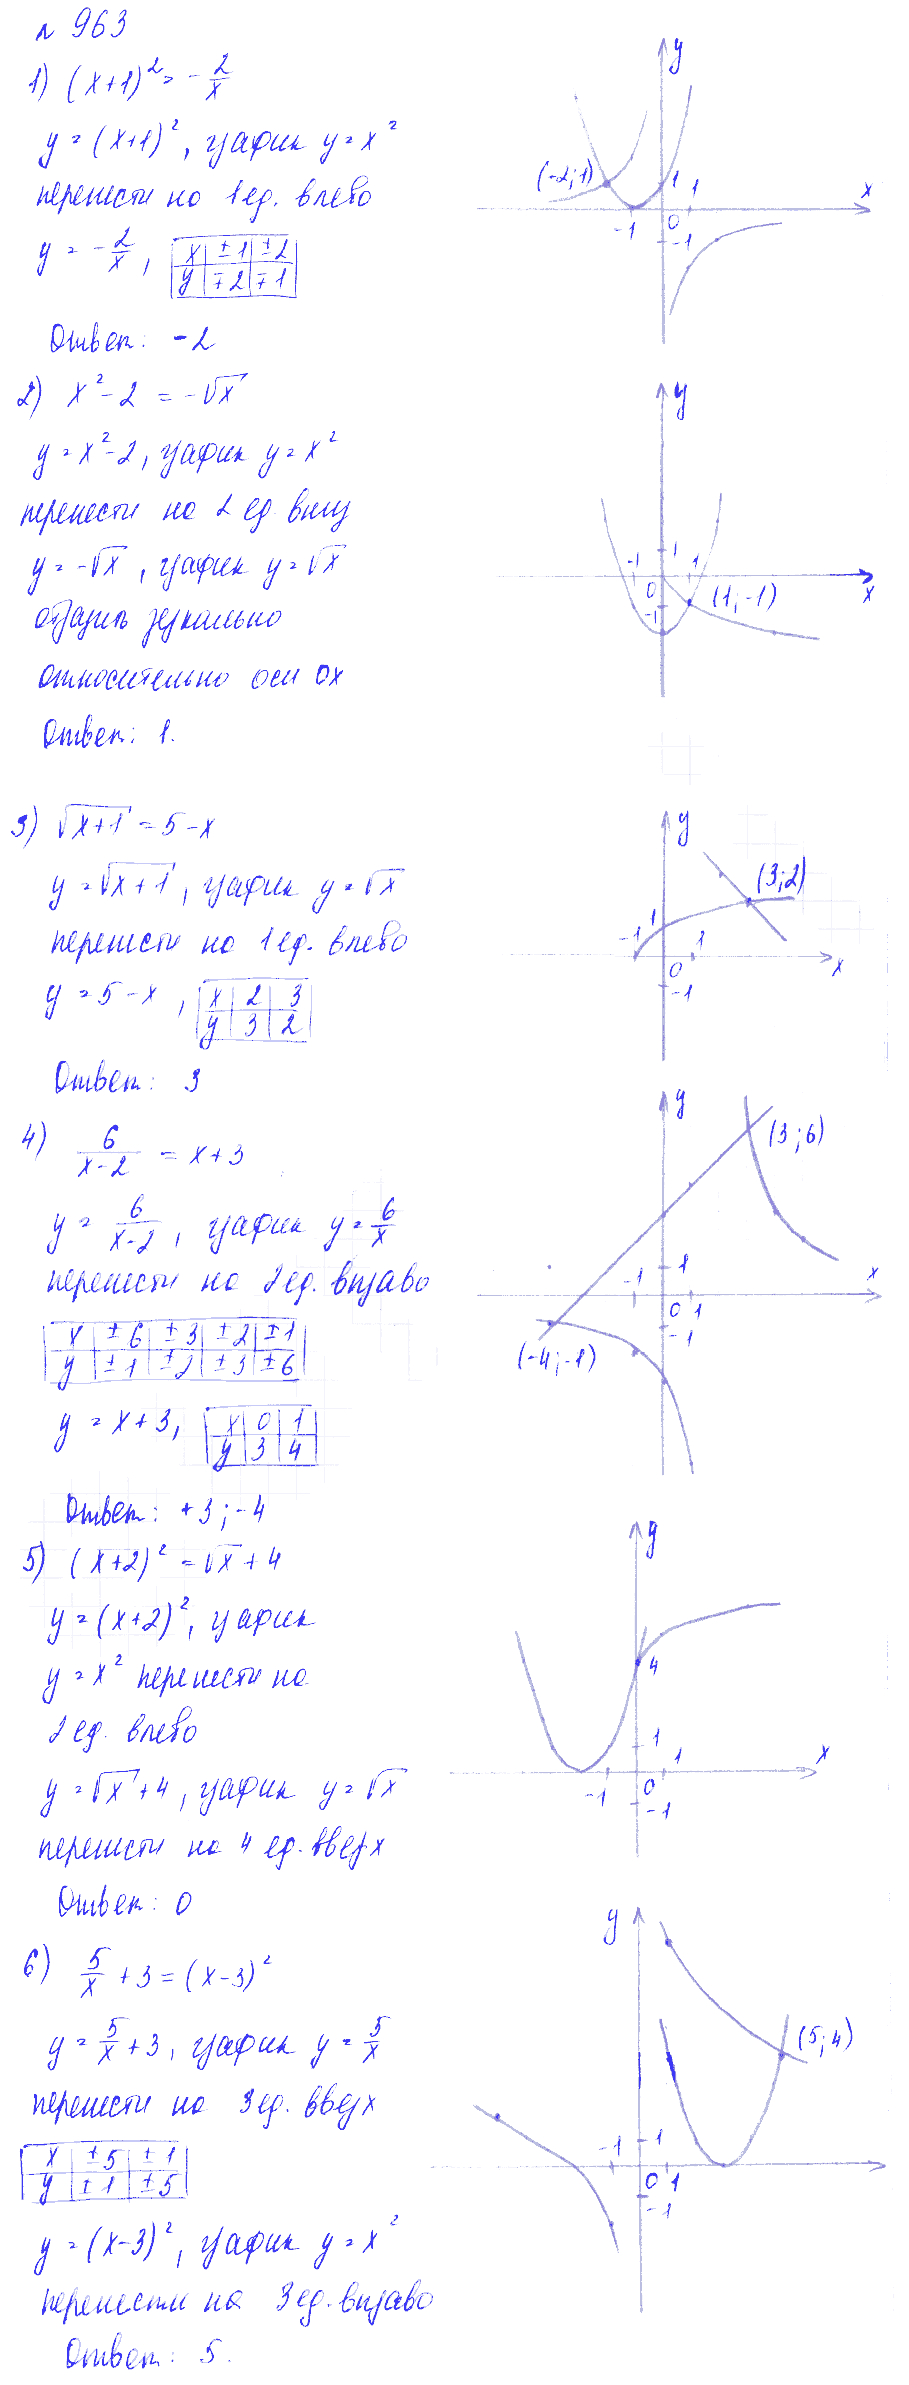 № 963
1) (x+1)² = - 2/x
y = (x+1)², график y = x²
перенести на 1 ед. влево
y = - 2/x,
x | ±1 | ±2
y | ∓2 | ∓1
Ответ: -2
y
x
(-2;1)
1
1
-1
0
-1
2) x² - 2 = -√x
y = x² - 2, график y = x²
перенести на 2 ед. вниз
y = -√x, график y = √x
отразить зеркально
относительно оси Ox
Ответ: 1.
y
x
-1
1
1
0
-1
(1;-1)
3) √(x+1) = 5 - x
y = √(x+1), график y = √x
перенести на 1 ед. влево
y = 5 - x,
x | 2 | 3
y | 3 | 2
Ответ: 3
y
x
(3;2)
-1
1
1
0
-1
4) 6/(x-2) = x + 3
y = 6/(x-2), график y = 6/x
перенести на 2 ед. вправо
x | ±6 | ±3 | ±2 | ±1
y | ±1 | ±2 | ±3 | ±6
y = x + 3,
x | 0 | 1
y | 3 | 4
Ответ: +3; -4
y
x
(3;6)
-1
1
0
1
-1
(-4;-1)
5) (x+2)² = √x + 4
y = (x+2)², график
y = x² перенести на
2 ед. влево
y = √x + 4, график y = √x
перенести на 4 ед. вверх
Ответ: 0
y
x
4
1
1
-1
0
-1
6) 5/x + 3 = (x-3)²
y = 5/x + 3, график y = 5/x
перенести на 3 ед. вверх
x | ±5 | ±1
y | ±1 | ±5
y = (x-3)², график y = x²
перенести на 3 ед. вправо
Ответ: 5.
y
(5;4)
-1
1
0
1
-1